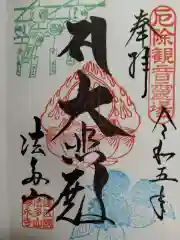 厄除観音霊場
奉拝
令和五年
大悲殿
法多山